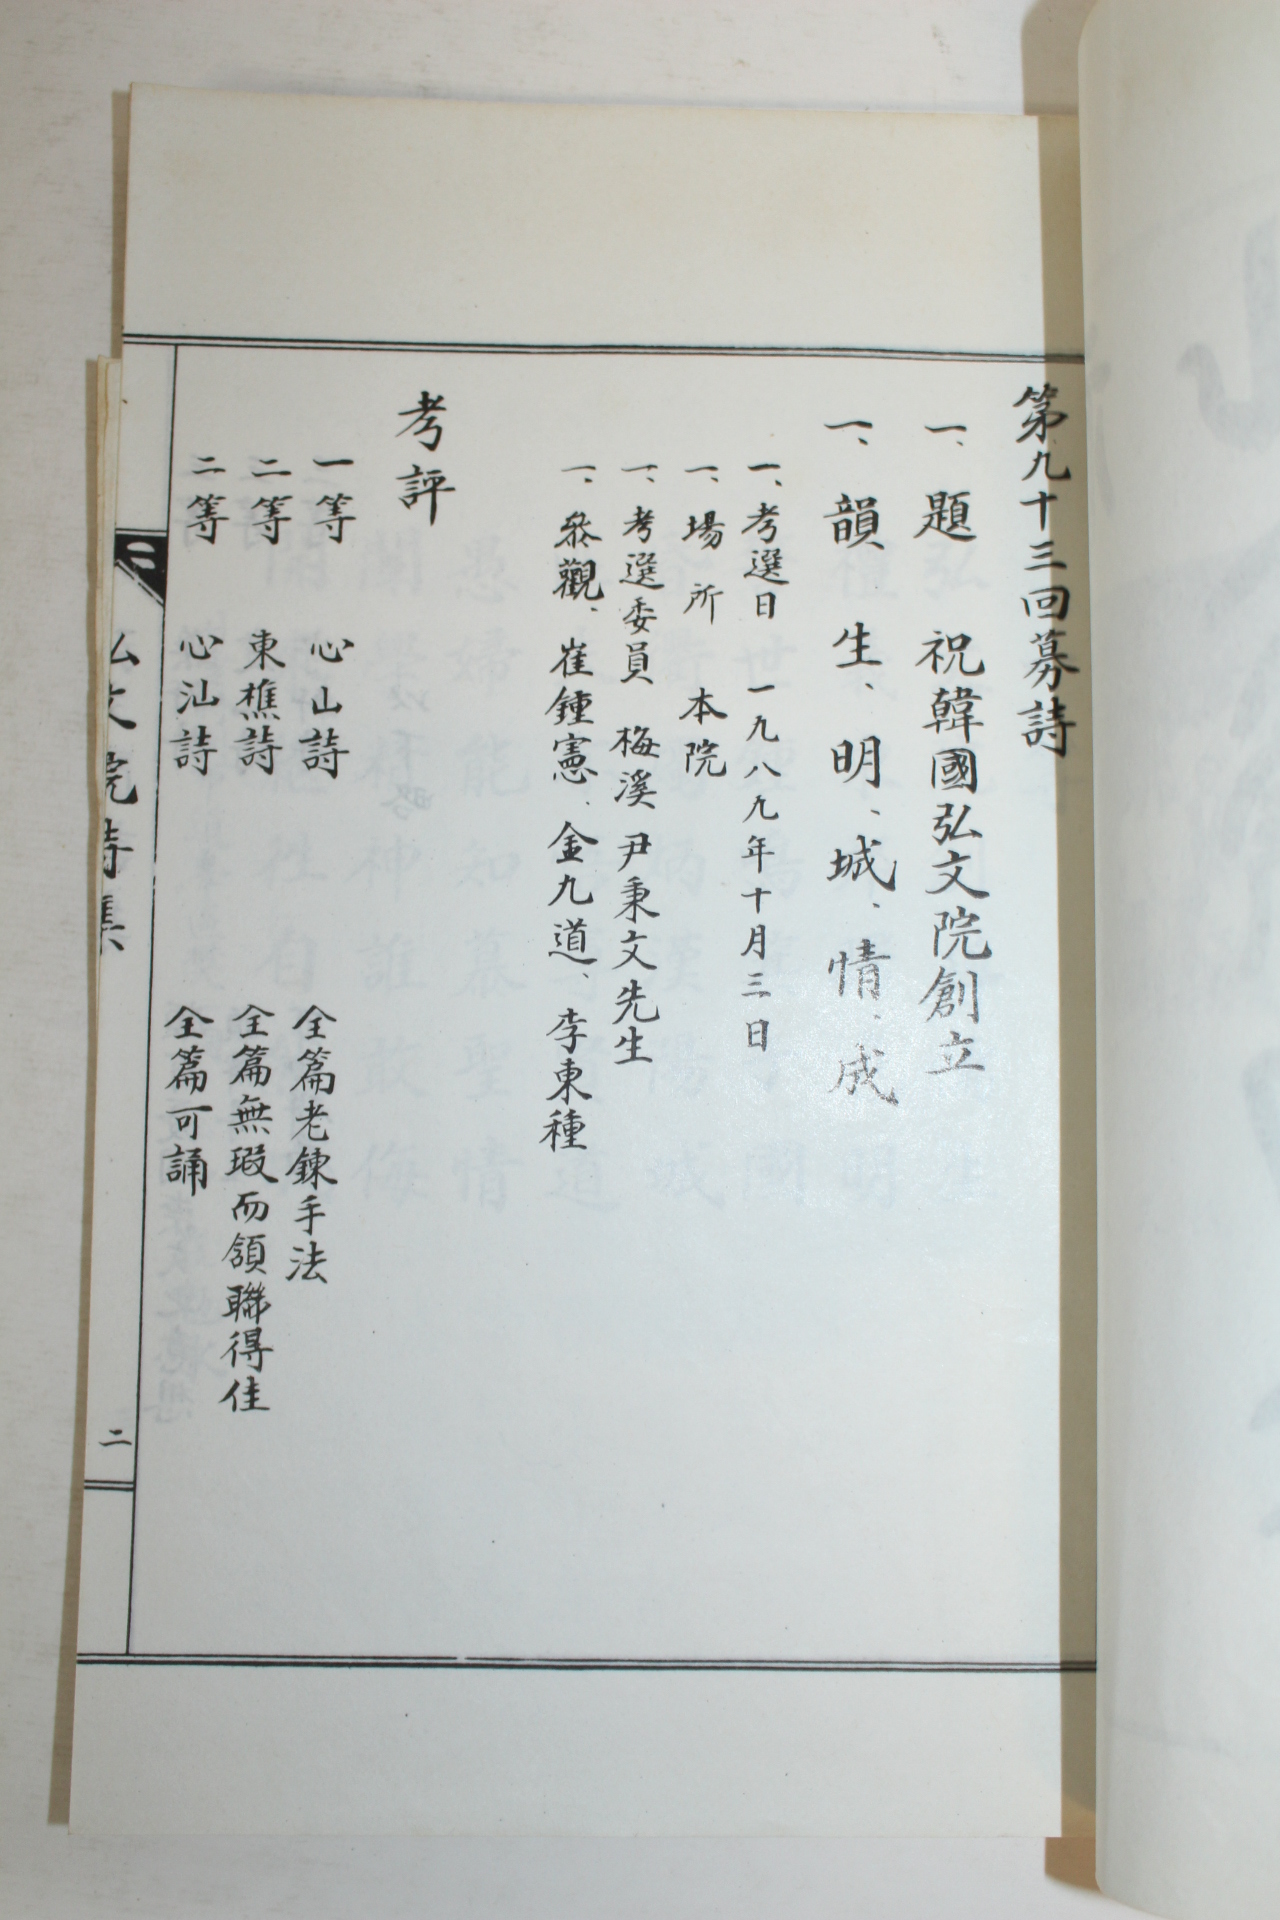 第九十三回募詩
一、題 祝韓國弘文院創立
一、韻 生、明、城、情、成
一、考選日 一九八九年十月三日
一、場所 本院
一、考選委員 梅溪尹秉文先生
一、參觀、崔鍾憲、金九道、李東種
考評
一等 心山詩 全篇老鍊手法
二等 東樵詩 全篇無瑕而頷聯得佳
二等 心汕詩 全篇可誦
弘文院詩集
二